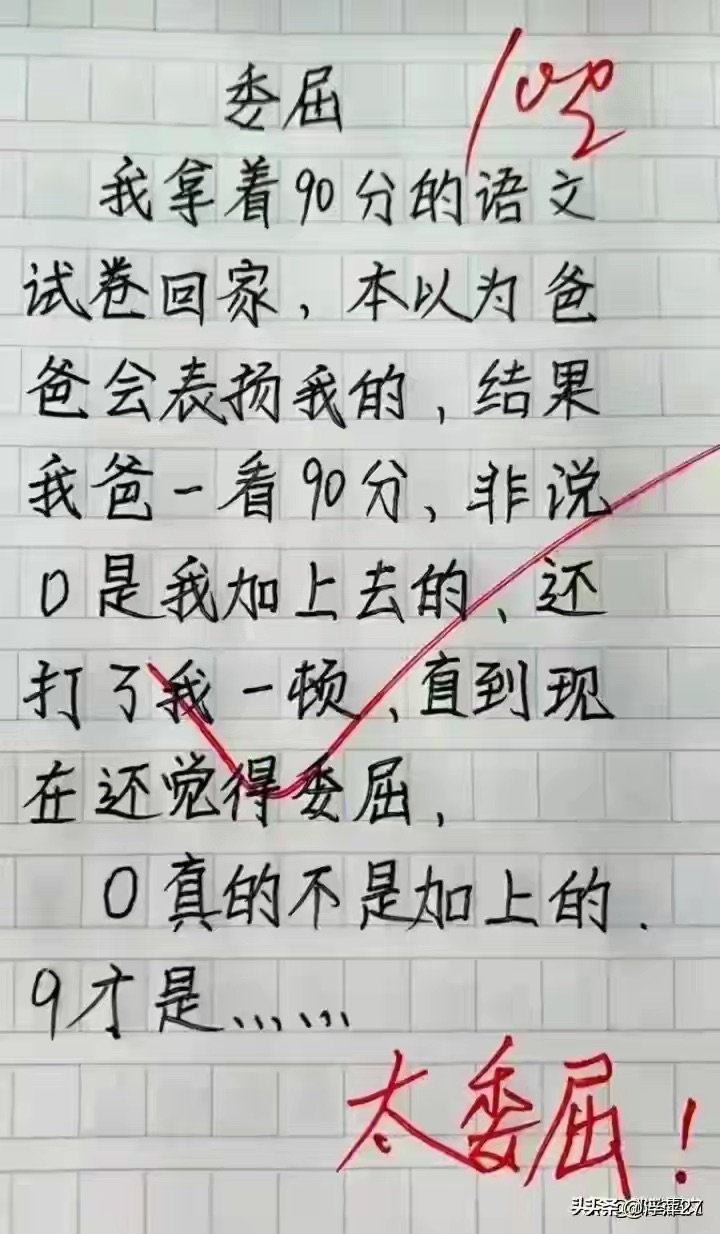 委屈
100
我拿着90分的语文
试卷回家,本以为爸
爸会表扬我的,结果
我爸一看90分、非说
0是我加上去的、还
打了我一顿、直到现
在还觉得委屈,
0真的不是加上的.
9才是、、、、、、
太委屈!
头条@